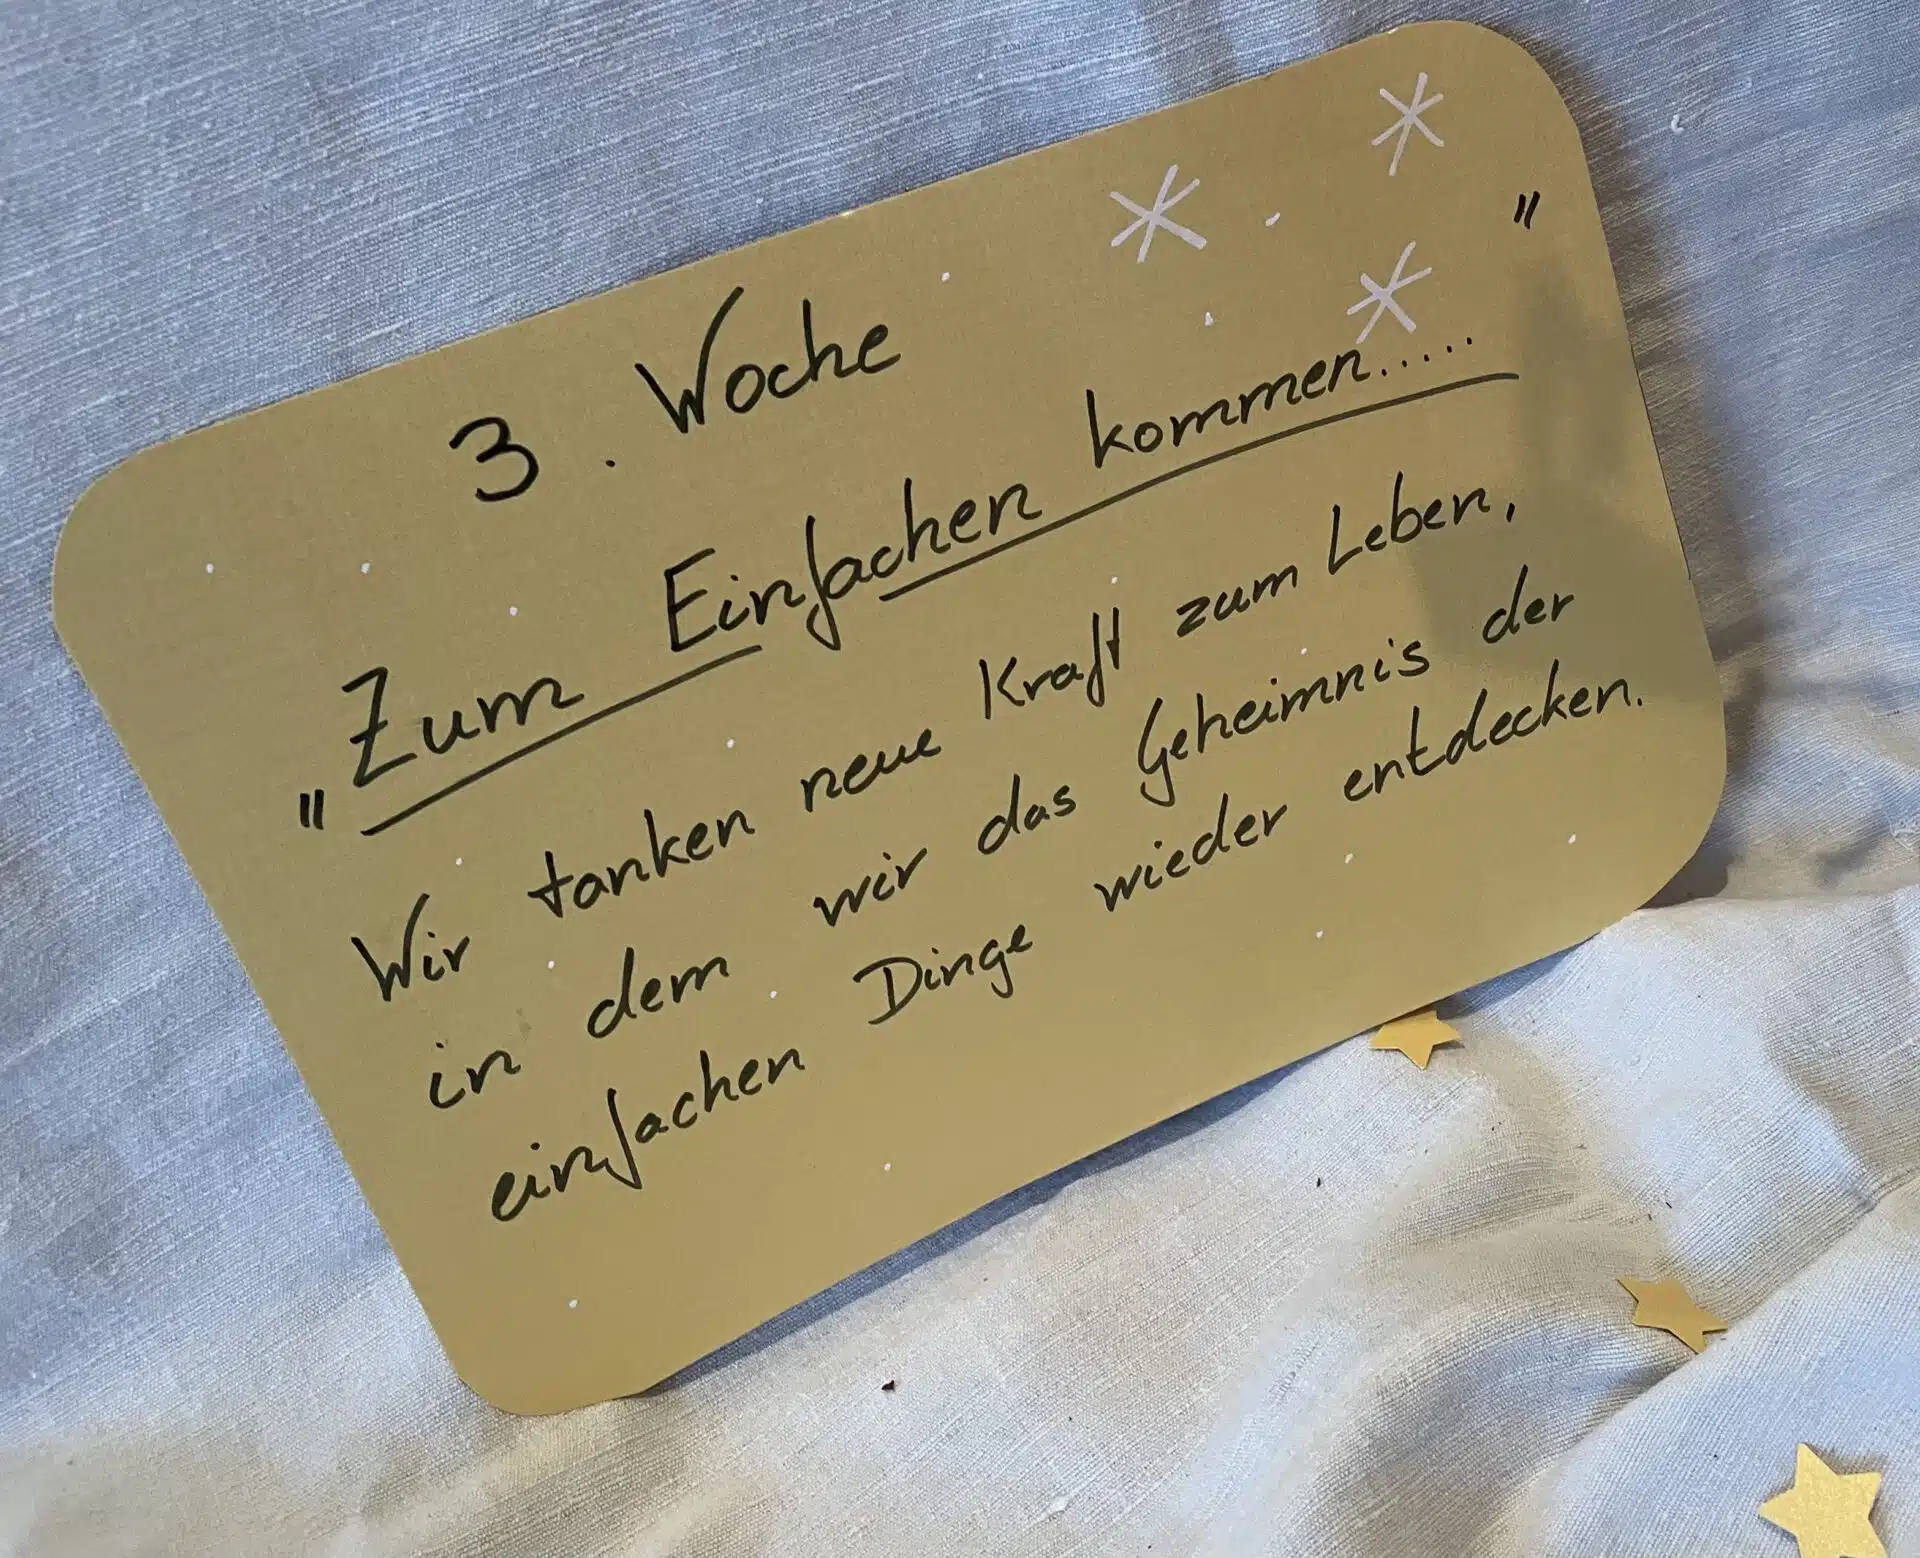 3. Woche
"Zum Einfachen kommen....."
Wir tanken neue Kraft zum Leben,
in dem wir das Geheimnis der
einfachen Dinge wieder entdecken.